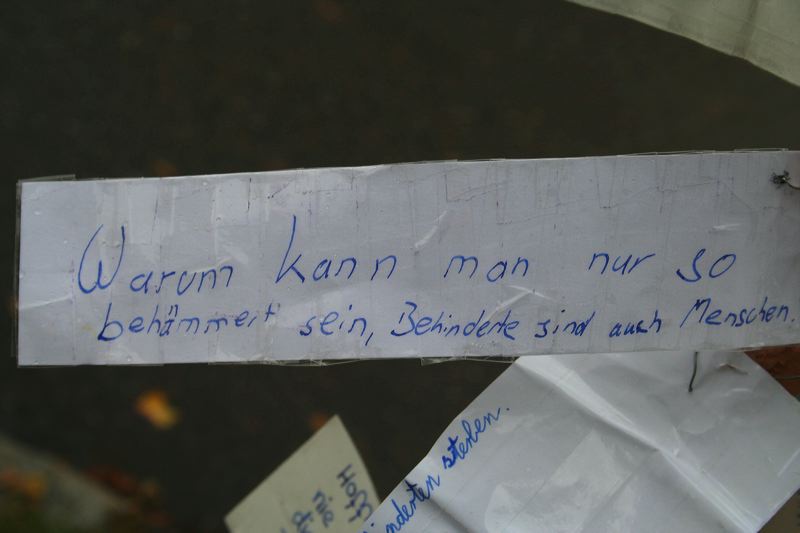 Warum kann man nur so
behämmert sein, Behinderte sind auch Menschen.
sterben.